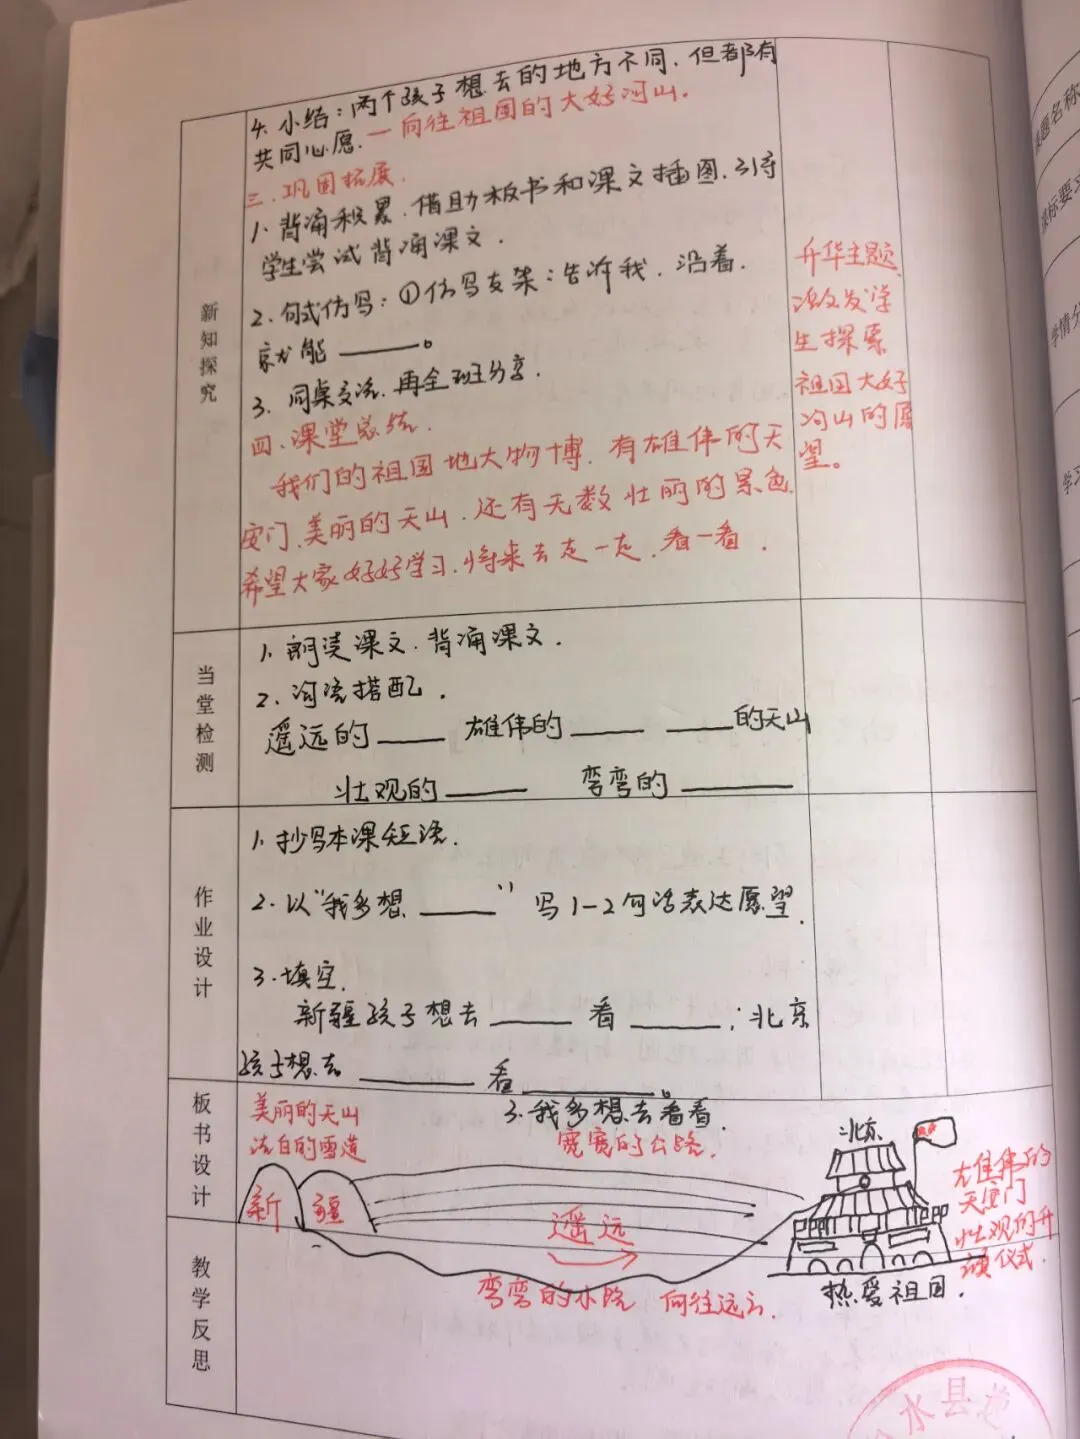 4. 小结：两个孩子想去的地方不同，但都有
共同心愿，一向往祖国的大好河山．
三、巩固拓展．
1. 背诵积累．借助板书和课文插图，引导
学生尝试背诵课文．
2. 句式仿写：①仿写支架：告诉我，沿着．
就能______。
3. 同桌交流，再全班分享．
四、课堂总结．
我们的祖国地大物博，有雄伟的天
安门、美丽的天山．还有无数壮丽的景色．
希望大家好好学习，将来去走一走，看一看．
升华主题，
激发学
生探索
祖国大好
河山的愿
望。
新知探究
当堂检测
1. 朗读课文．背诵课文．
2. 词语搭配．
遥远的____ 雄伟的____ ____的天山
壮观的____ 弯弯的____
作业设计
1. 抄写本课短语．
2. 以“我多想____” 写1-2句话表达愿望．
3. 填空．
新疆孩子想去____看____；北京
孩子想去____看____。
板书设计
3. 我多想去看看．
美丽的天山
洁白的雪莲
宽宽的公路．
北京
雄伟的
天安门
壮观的升
旗仪式．
新疆
遥远
弯弯的小路 向往远方．
热爱祖国．
教学反思
课题名称
课标要
学情分
学习
水县